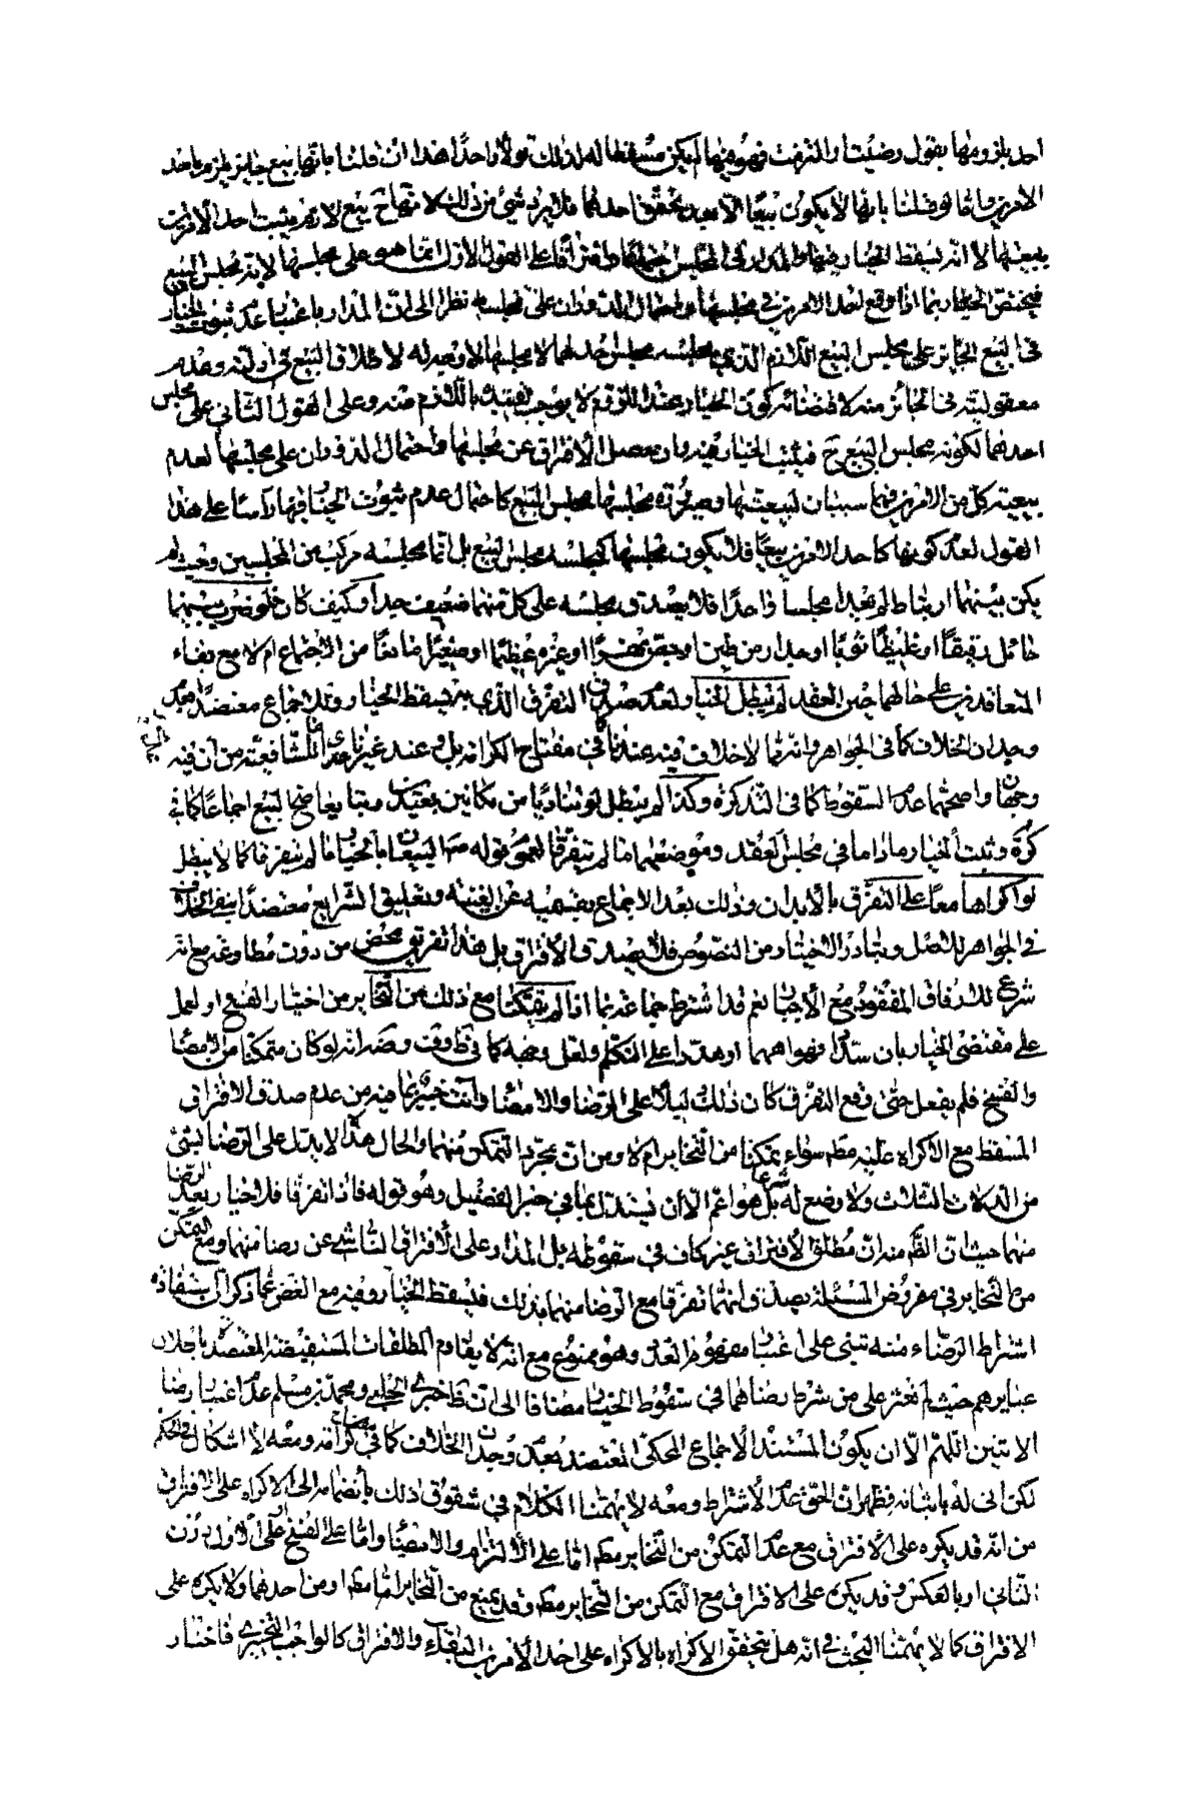 احد بلزومها بقول رضيت او التزمت فهو فيهما لم يكن مسقطا له لذلك قولا واحدا هذا ان قلنا بانها بيع جايز يلزم باحد
الامرين واما لو قلنا بانها لا يكون بيعا الا بعد تحقق احدهما فلا يرد شئ من ذلك لانها ح بيع لازم يثبت احد الامرين
ببيعتهما الا انه يسقط الخيار فيهما والمدار في المجلس اجتماعا وافتراقا على القول الاول انما هو على مجلسها لانه مجلس البيع
فيختص الخيار بما اذا وقع احد الامرين في مجلسها واحتمال الدوران على مجلسه نظرا الى ان المدار باعتبار عدم ثبوت الخيار
في البيع الجائز على مجلس البيع اللازم الذي مجلسه مجلس احدهما لا مجلسها لا وجه له لاطلاق البيع في ادلته وعدم
معقوليته في الجائز منه لاقتضائه كون الخيار عند اللزوم لا يوجب تقييده باللازم منه وعلى القول الثاني على مجلس
احدهما لكونه مجلس البيع ح فيثبت الخيار فيه وان حصل الافتراق عن مجلسها واحتمال الدوران على مجلسها لعدم
بيعية كل من الامرين فهما سببان لبيعيتها وصيرورة مجلسها مجلس البيع كاحتمال عدم ثبوت الخيار فيها رأسا على هذا
القول لعدم كونها كاحد الامرين بيعا فلا يكون مجلسها كمجلسه مجلس البيع بل انما مجلسه مركب من المجلسين وحيث لم
يكن بينهما ارتباط لم يعدا مجلسا واحدا فلا يصدق مجلسه على كل منهما ضعيف جدا وكيف كان فلو ضرب بينهما
حائل دقيقا او غليظا ثوبا او جدار من طين او جص محفورا او غيره عظيما او صغيرا مانعا من الاجتماع ام لا مع بقاء
المتعاقدين على حالهما حين العقد لم يبطل الخيار لعدم صدق التفرق الذي به يسقط الخيار وللاجماع معتضدا بعدم
وجدان الخلاف كما في الجواهر وانه مما لا خلاف فيه عندنا كما في مفتاح الكرامة بل وعند غيرنا عدا ما للشافعية من ان فيه
وجهان واصحهما عدم السقوط كما في التذكرة وكذا لم يبطل لو تناديا من مكانين بعيدين فتبايعا صح البيع اجماعا كما في
كرة وثبت الخيار ما داما في مجلس العقد وموضعهما ما لم يتفرقا لعموم قوله ص البيعان بالخيار ما لم يفترقا كما لا يبطل
لو اكرها معا على التفرق بالابدان وذلك بعد الاجماع بقسميه عن الغنية وتعليق الشرايع معتضدا بنفي الخلاف
في الجواهر للاصل وتبادر الاختيار من النصوص فلا يصدق الافتراق بل هذا تفريق محض من دون مطاوعة مع انه
شرع للارفاق المفقود مع الاجبار نعم قد اشترط جماعة بما اذا لم يتمكنا مع ذلك من التخاير من اختيار الفسخ او لعمل
على مقتضى الخيار بان سد فواههما او هددا على التكلم ولعل وجهه كما في ظ وقف وضه انه لو كان متمكنا من الامضاء
والفسخ فلم يفعل حتى وقع التفرق كان ذلك دليلا على الرضا والامضاء وانت خبير بما فيه من عدم صدق الافتراق
المسقط مع الاكراه عليه مطم سواء تمكنا من التخاير ام لا ومن ان مجرد التمكن منهما والحال هذا لا يدل على الرضا بشئ
من الدلالات الثلاث ولا وضع له شرعا بل هو اعم الا ان يستدل بما في خبر الفضيل وهو قوله فاذا تفرقا فلا خيار بعد الرضا
منهما حيث ان الظ منه ان مطلق الافتراق غير كاف في سقوطه بل المدار على الافتراق الناشي عن رضا منهما ومع التمكن
من التخاير في مفروض المسئلة يصدق انهما تفرقا مع الرضا منهما بذلك فيسقط الخيار وفيه مع الغض عما ذكر ان استفاده
اشتراط الرضاء منه تبنى على اعتبار مفهوم العلة وهو ممنوع مع انه لا يقاوم المطلقات المستفيضة المعتضدة باطلاق
عبايرهم حيث لم نعثر على من شرط رضاهما في سقوط الخيار مضافا الى ان ظ خبري الحلبي ومحمد بن مسلم عدم اعتبار رضا
الاثنين اللهم الا ان يكون المستند الاجماع المحكي المعتضد بعدم وجدان الخلاف كما في مفتاح كرامة ومعه لا اشكال في الحكم
لكن انى له باثباته فظهر ان الحق عدم الاشتراط ومعه لا يهمنا الكلام في شقوق ذلك بانضمامه الى الاكراه على الافتراق
من انه قد يكره على الافتراق مع عدم التمكن من التخاير مطم اما على الالتزام والامضاء واما على الفسخ او على الاول دون
الثاني او بالعكس وقد يكره على الافتراق مع التمكن من التخاير مطم وقد يمنع من التخاير اما مطم او من احدهما ولا يكره على
الافتراق كما لا يهمنا البحث في انه هل يتحقق الاكراه بالاكراه على احد الامرين البقاء والافتراق كالواجب التخييري فاختار